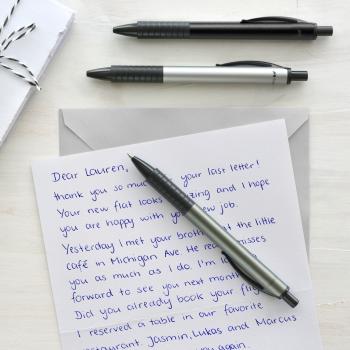 Dear Lauren,
thank you so mu your last letter!
Your new flat looks zing and I hope
you are happy with yo new job.
Yesterday I met your broth at the little
café in Michigan Ave. He rea misses
you as much as I do. I'm lo
forward to see you next mon
Did you already book your flig
I reserved a table in our favorite
staurant. Jasmin, Lukas and Marcus
you again.